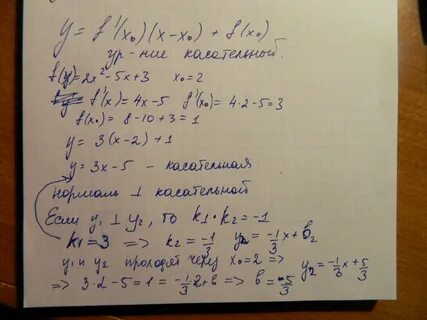 y = f'(x₀)(x-x₀) + f(x₀)
ур-ние касательной.
f(y)=2x²-5x+3 x₀=2
f'(x)=4x-5 f'(x₀)=4·2-5=3
f(x₀)=8-10+3=1
y = 3(x-2)+1
y=3x-5 - касательная
нормаль ⊥ касательной
Если y₁ ⊥ y₂, то k₁·k₂=-1
k₁=3 => k₂=-1/3 y₂=-1/3x+b₂
y₁ и y₂ проходят через x₀=2 =>
=> 3·2-5=1=-1/3·2+b => b=5/3 y₂=-1/3x+5/3